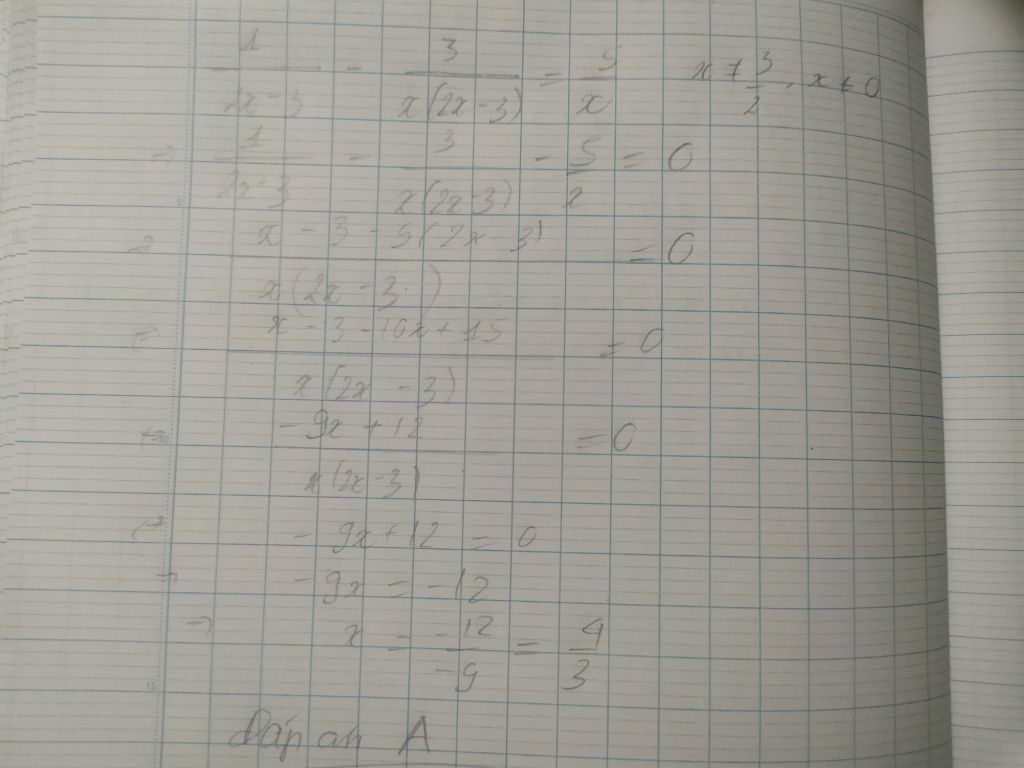 1/(2x-3) - 3/(x(2x-3)) = 5/x x ≠ 3/2, x ≠ 0
=> 1/(2x-3) - 3/(x(2x-3)) - 5/x = 0
=> (x - 3 - 5(2x - 3))/(x(2x-3)) = 0
=> (x - 3 - 10x + 15)/(x(2x - 3)) = 0
=> (-9x + 12)/(x(2x-3)) = 0
=> -9x + 12 = 0
=> -9x = -12
=> x = -12/-9 = 4/3
Đáp án A